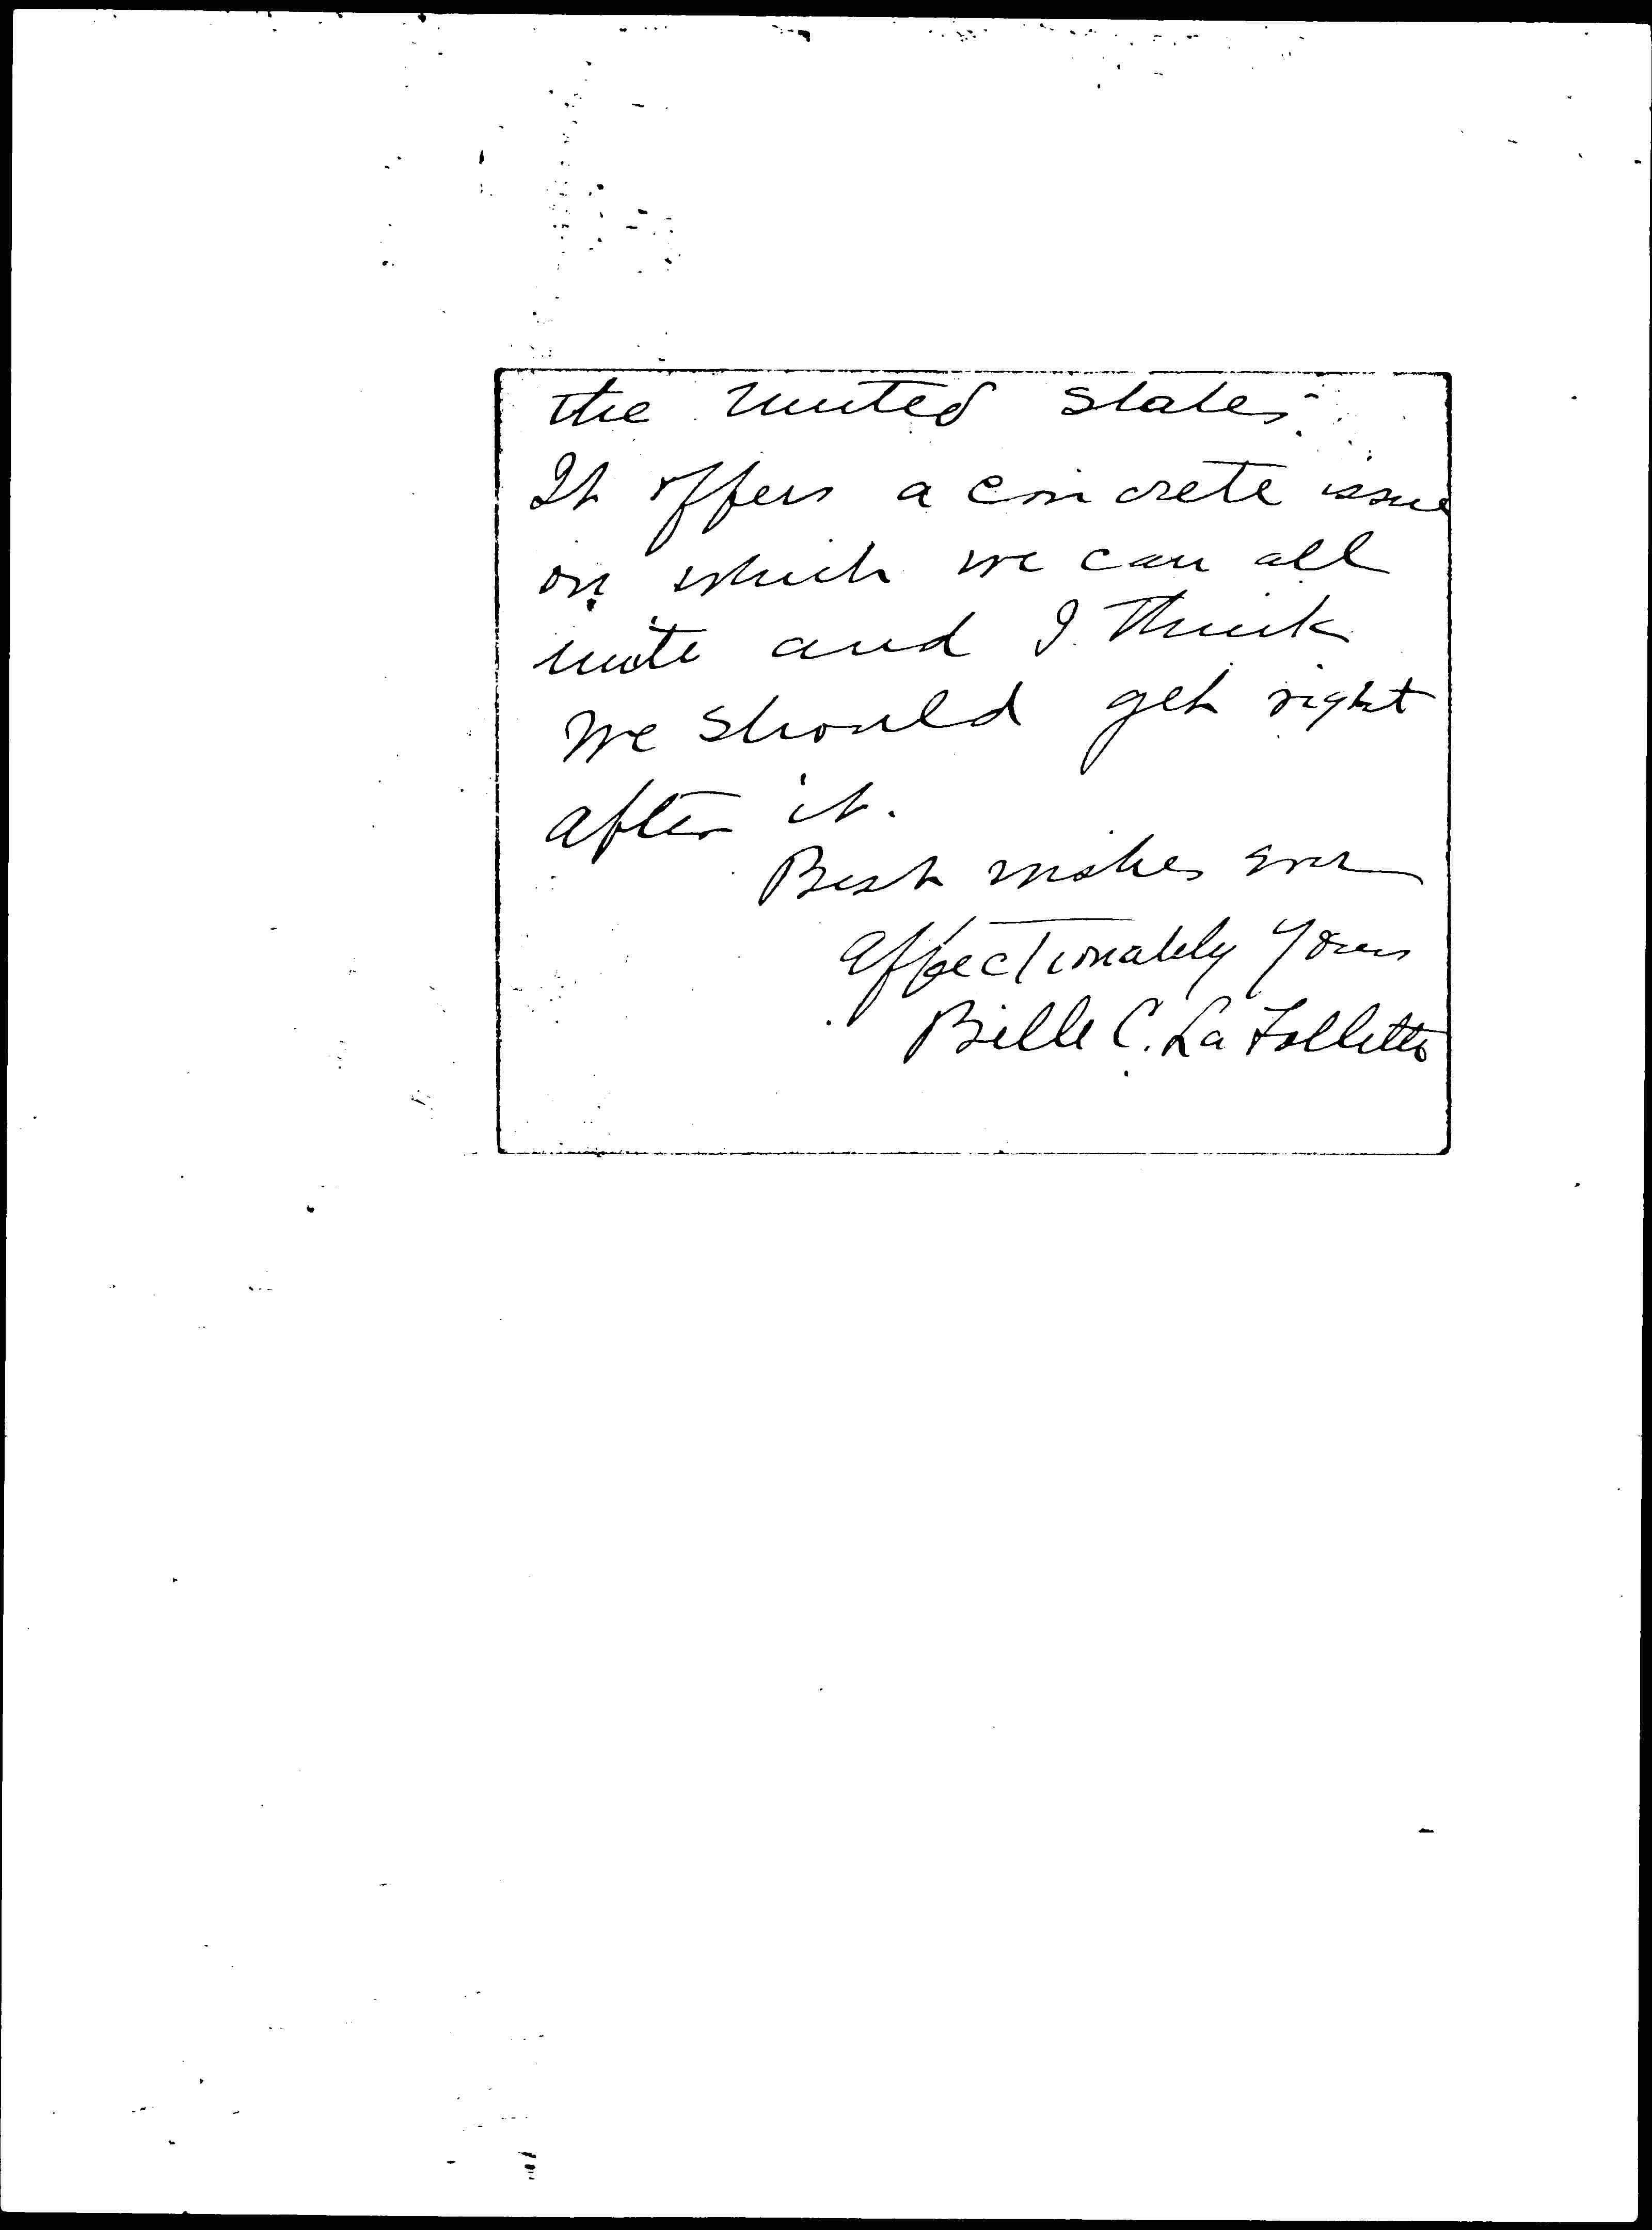 the United States.
It offers a concrete issue
on which we can all
unite and I think
we should get right
after it.
Best wishes ever
affectionately yours
Belle C. La Follette